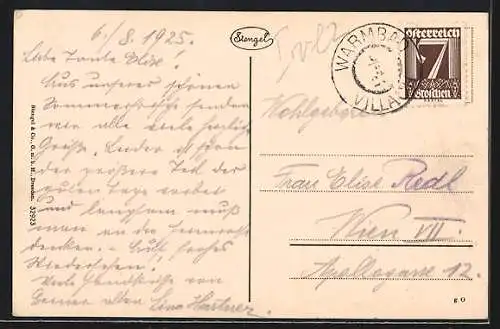 6./8. 1925.
Liebe Tante Elise!
Aus unserer schönen
Sommerfrische senden
wir alle viele herzliche
Grüße. Leider ist schon
der größere Teil der
guten Tage vorbei
und langsam muß
man an die Heimreise
denken. - Gutes, frohes
Wiedersehen!
Viele Handküsse von
Deiner alten Lina Hartner.
Stengel
Stengel & Co., G. m. b. H., Dresden. 32923
WARMBAD
VILLA
Österreich
7
Groschen
Wohlgeboren
Frau Elise Redl
Wien VII.
Apollogasse 12.
g o